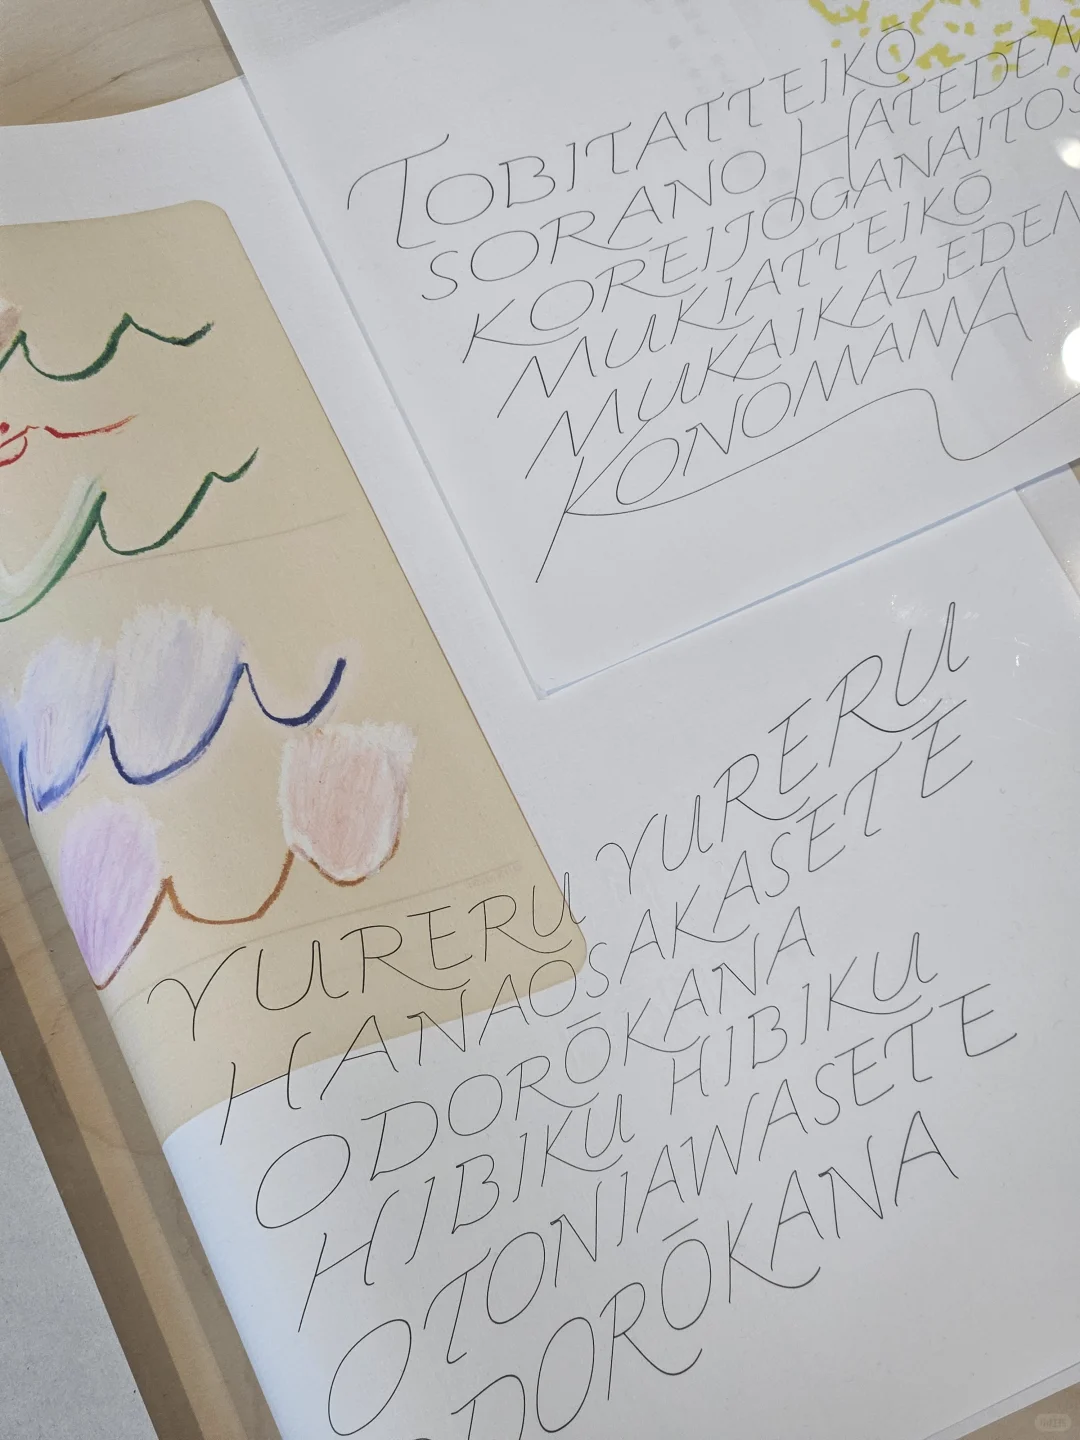 TOBITATTEIKŌ
SORANO HATEDEN
KOREIJŌGANAITOS
MUKIATTEIKŌ
MUKAIKAZEDEN
KONOMAMA
YURERU YURERU
HANAOSAKASETE
ODORŌKANA
HIBIKU HIBIKU
OTONIAWASETE
ODORŌKANA